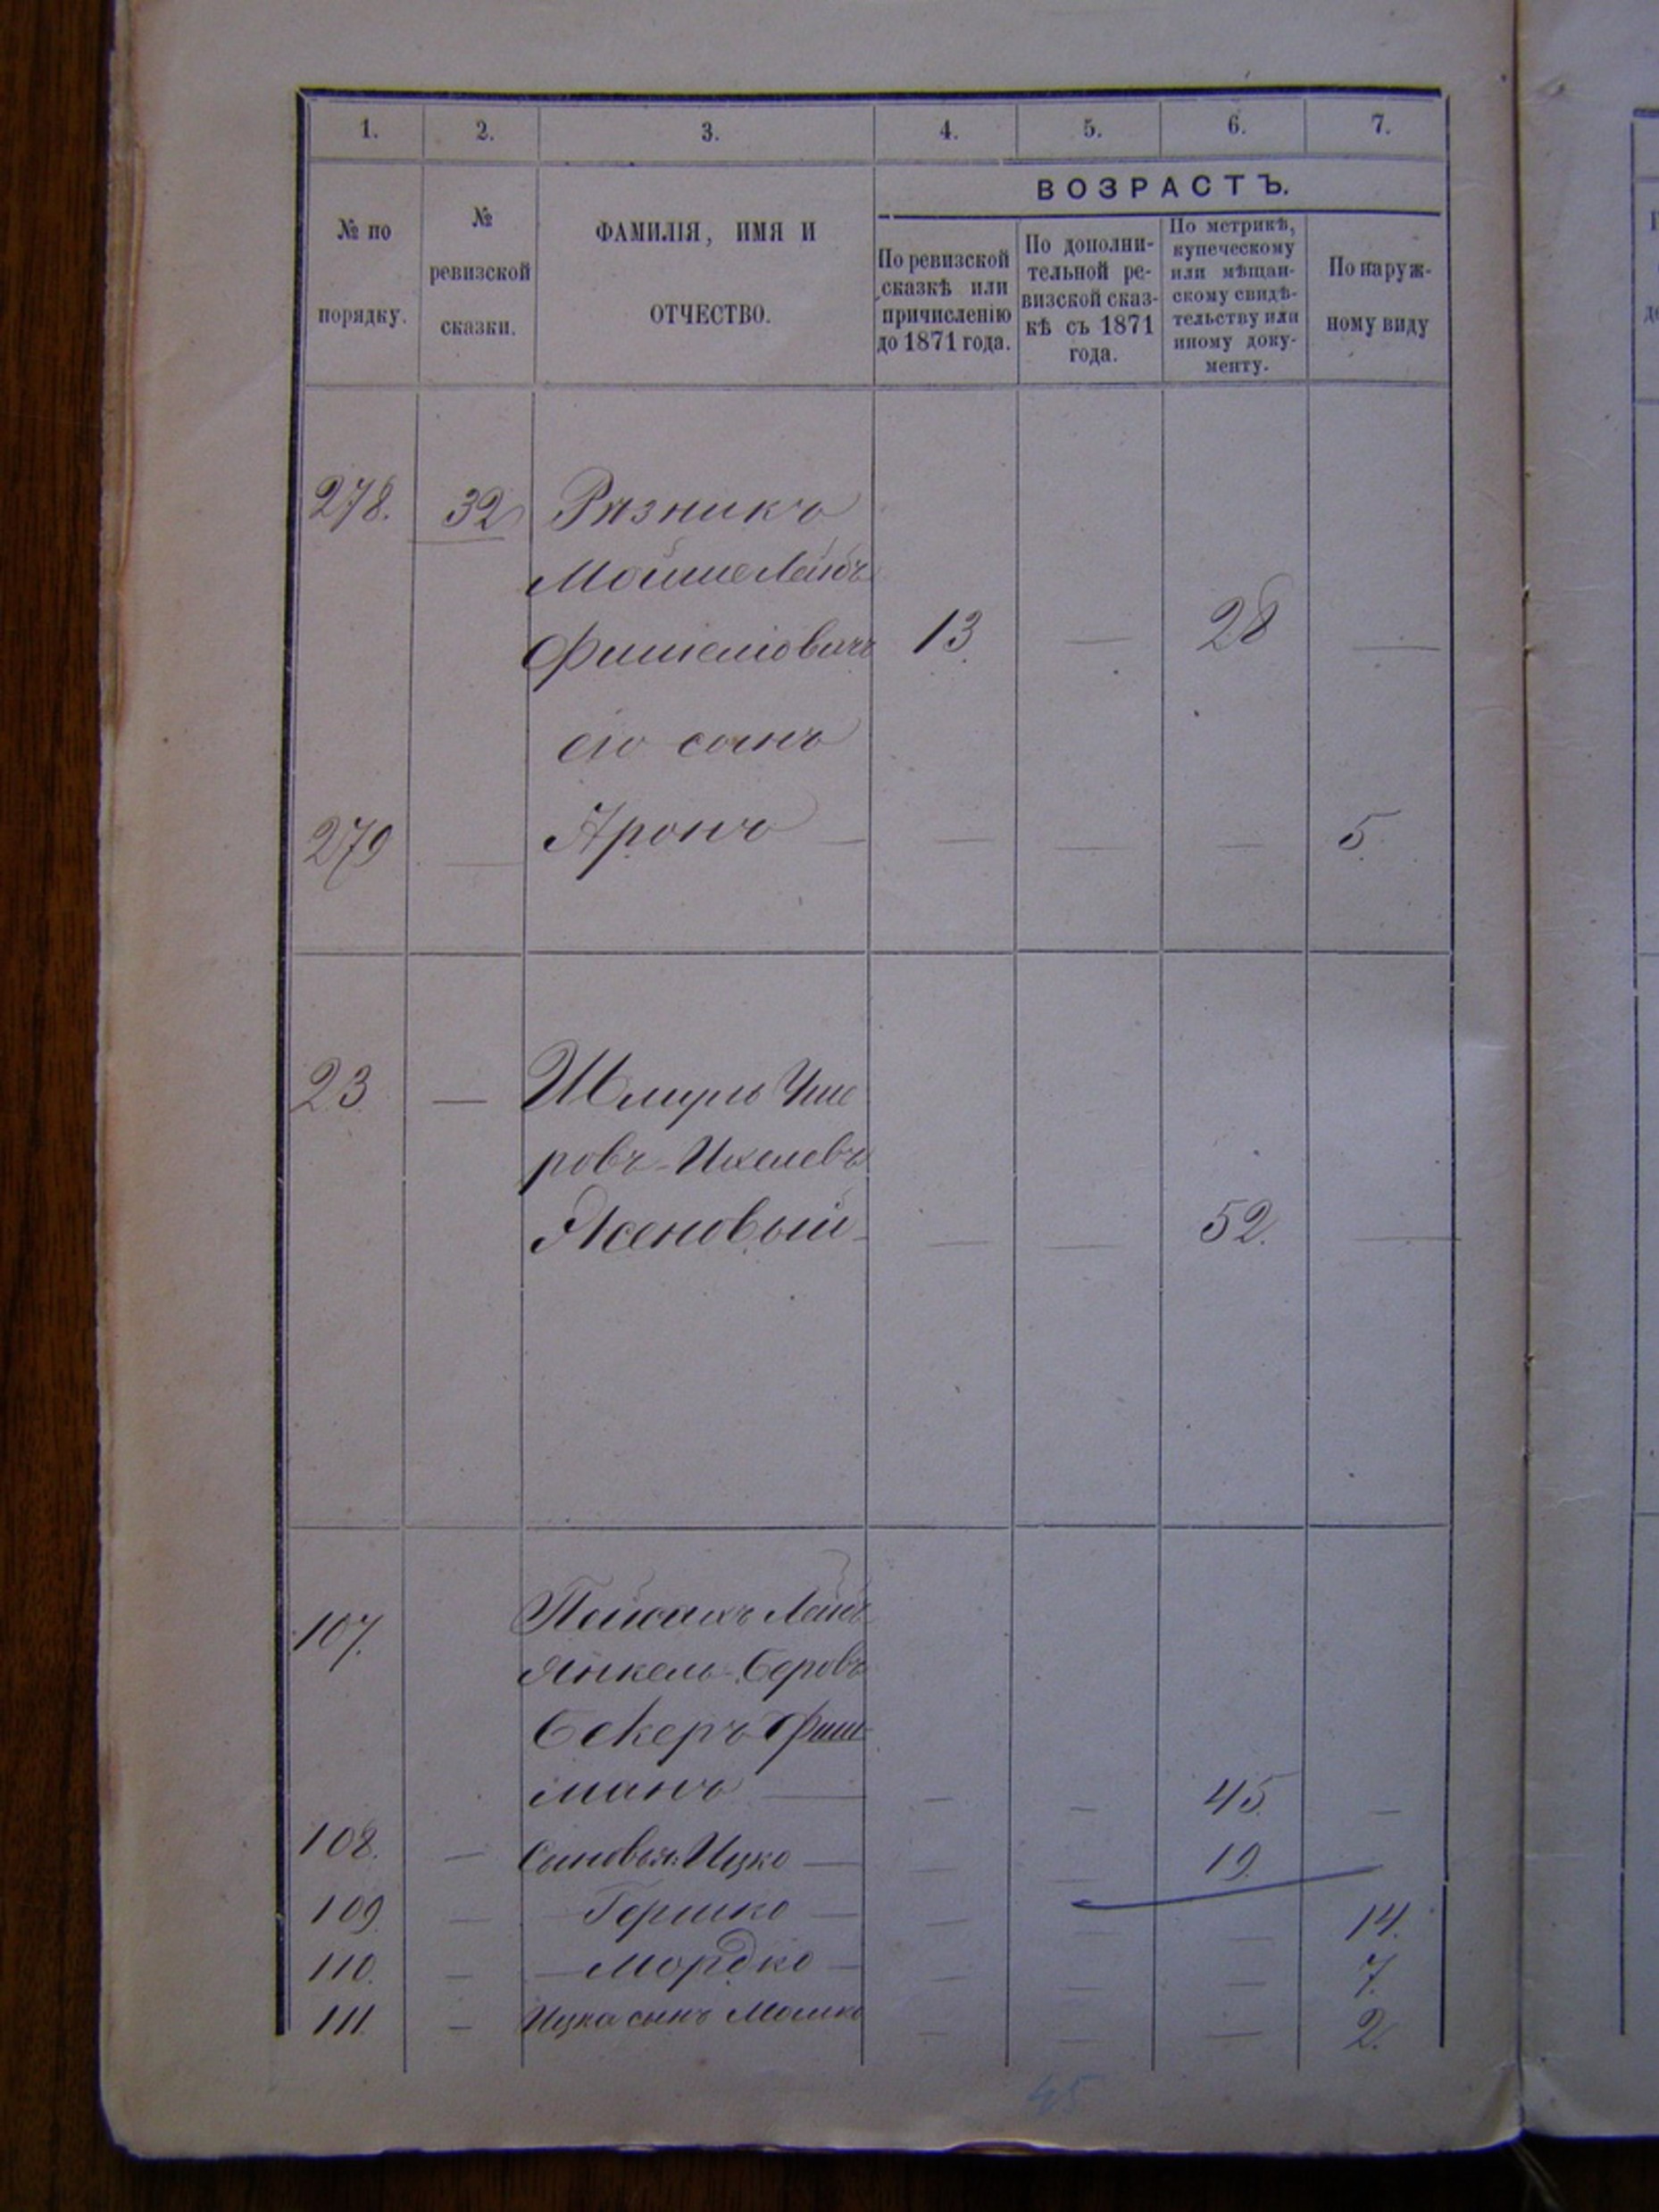 1. 2. 3. 4. 5. 6. 7.
№ по порядку.
№ ревизской сказки.
ФАМИЛІЯ, ИМЯ И ОТЧЕСТВО.
ВОЗРАСТЪ.
По ревизской сказкѣ или причисленію до 1871 года.
По дополни-
тельной ре-
визской сказ-
кѣ съ 1871
года.
По метрикѣ,
купеческому
или мѣщан-
скому свидѣ-
тельству или
иному доку-
менту.
По наруж-
ному виду
278. 32 Рѣзникъ
Мойше Лейбъ
Фишелiовичъ 13. — 28 —
его сынъ
279 — Аронъ — — — — 5.
23. — Шмуль
ровъ-Ихелевъ
Ясеновый — — 52. —
107. Пейсахъ Лейбъ
Янкель-Беровъ
Бекеръ Фиш-
манъ — — — 45. —
108. — Сыновья: Ицко — — — 19.
109. — Гершко — — — — 14.
110. — — Мордко — — — — 7.
111. — Ицка сынъ Мошко — — — 2.
45